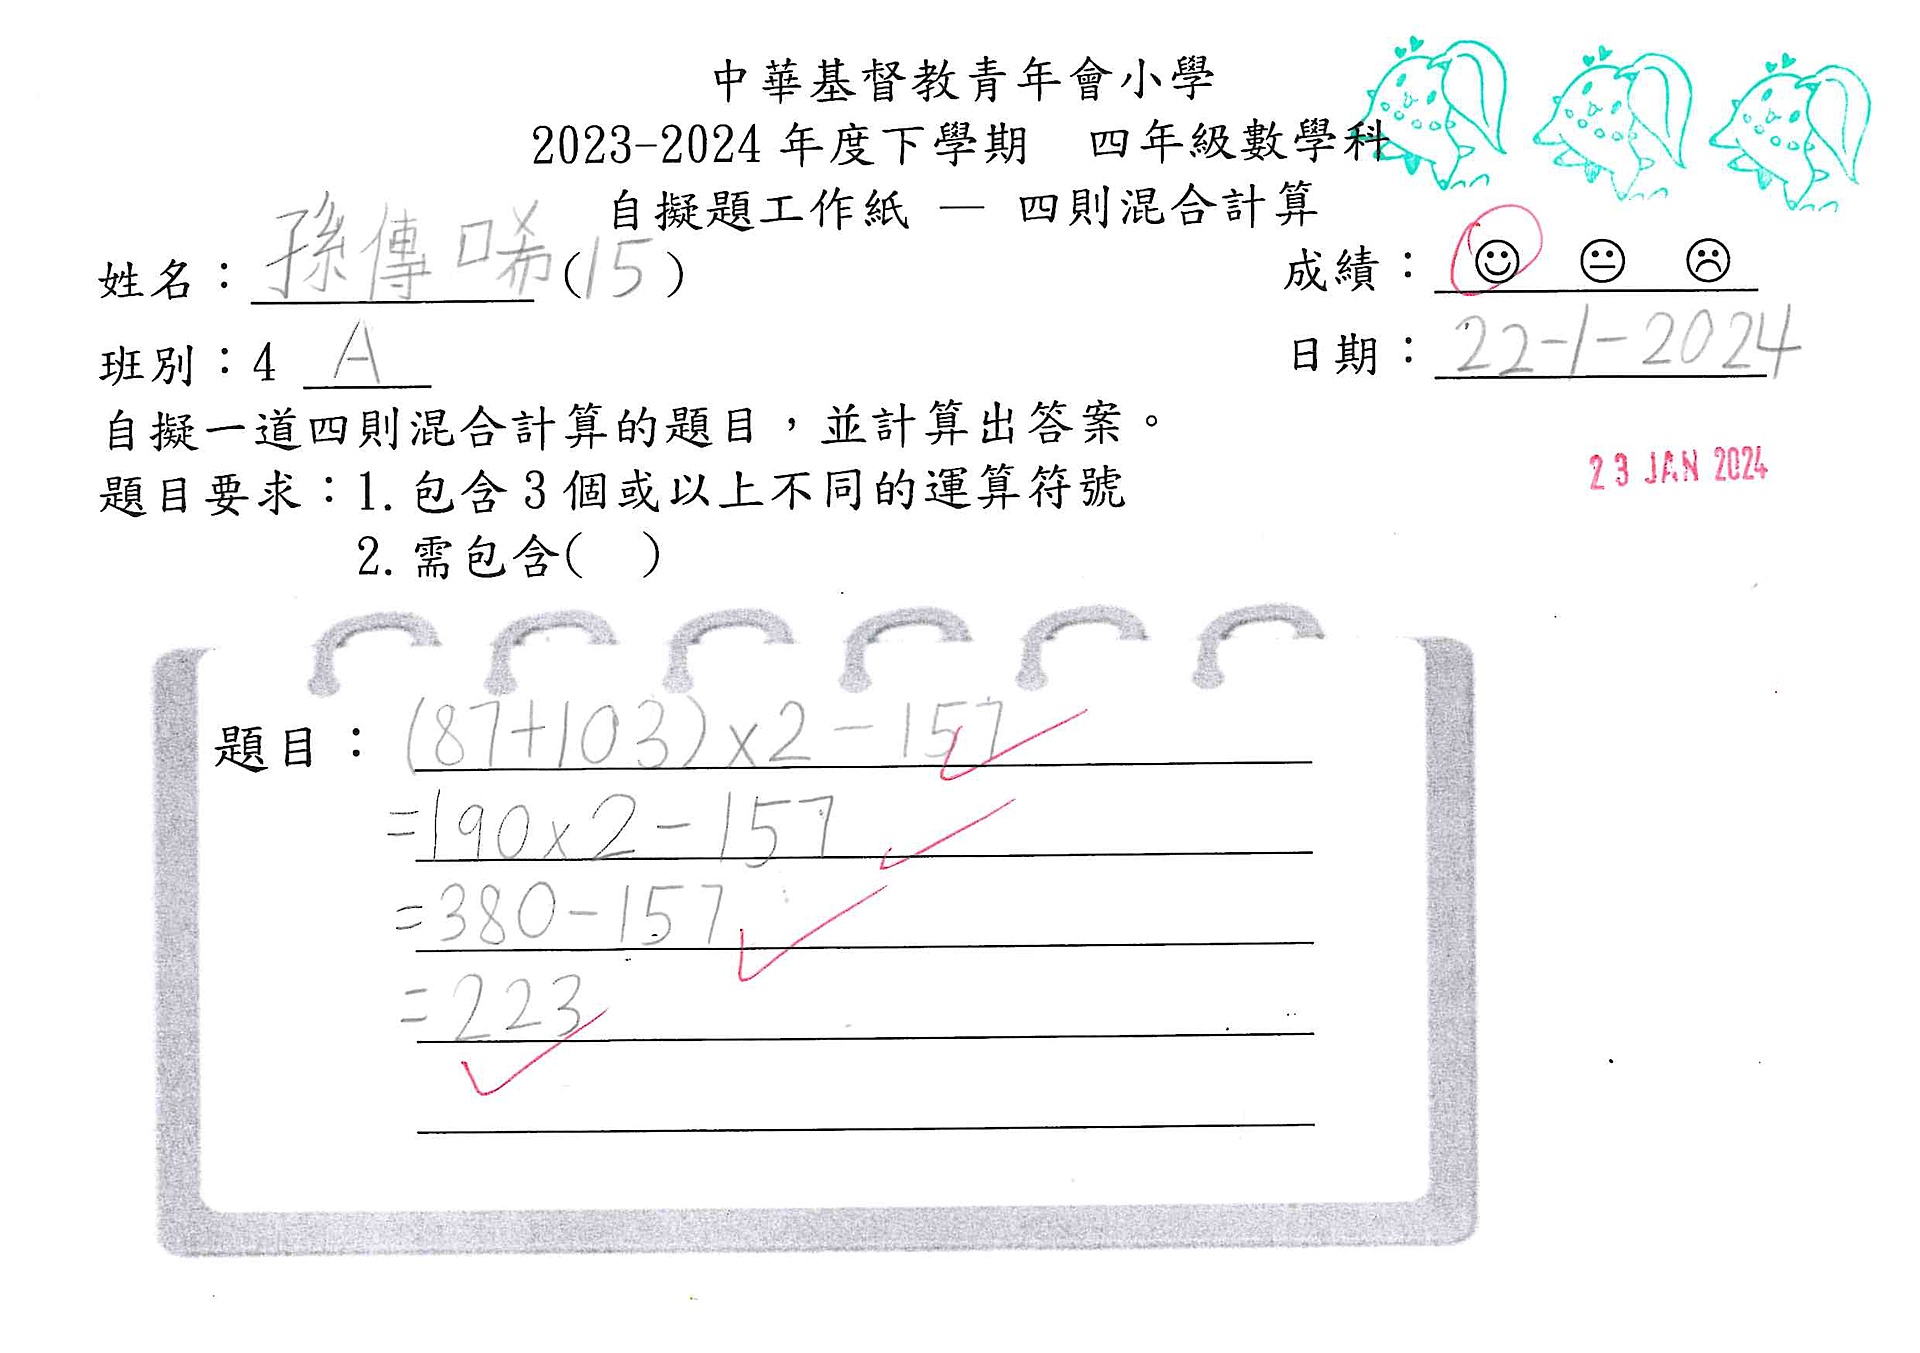 中華基督教青年會小學
2023-2024 年度下學期　四年級數學科
自擬題工作紙 — 四則混合計算
姓名：孫傳唏 (15)
成績：
班別：4 A
日期：22-1-2024
自擬一道四則混合計算的題目，並計算出答案。
23 JAN 2024
題目要求：1. 包含 3 個或以上不同的運算符號
2. 需包含(　)
題目：(87+103)×2-157
=190×2-157
=380-157
=223